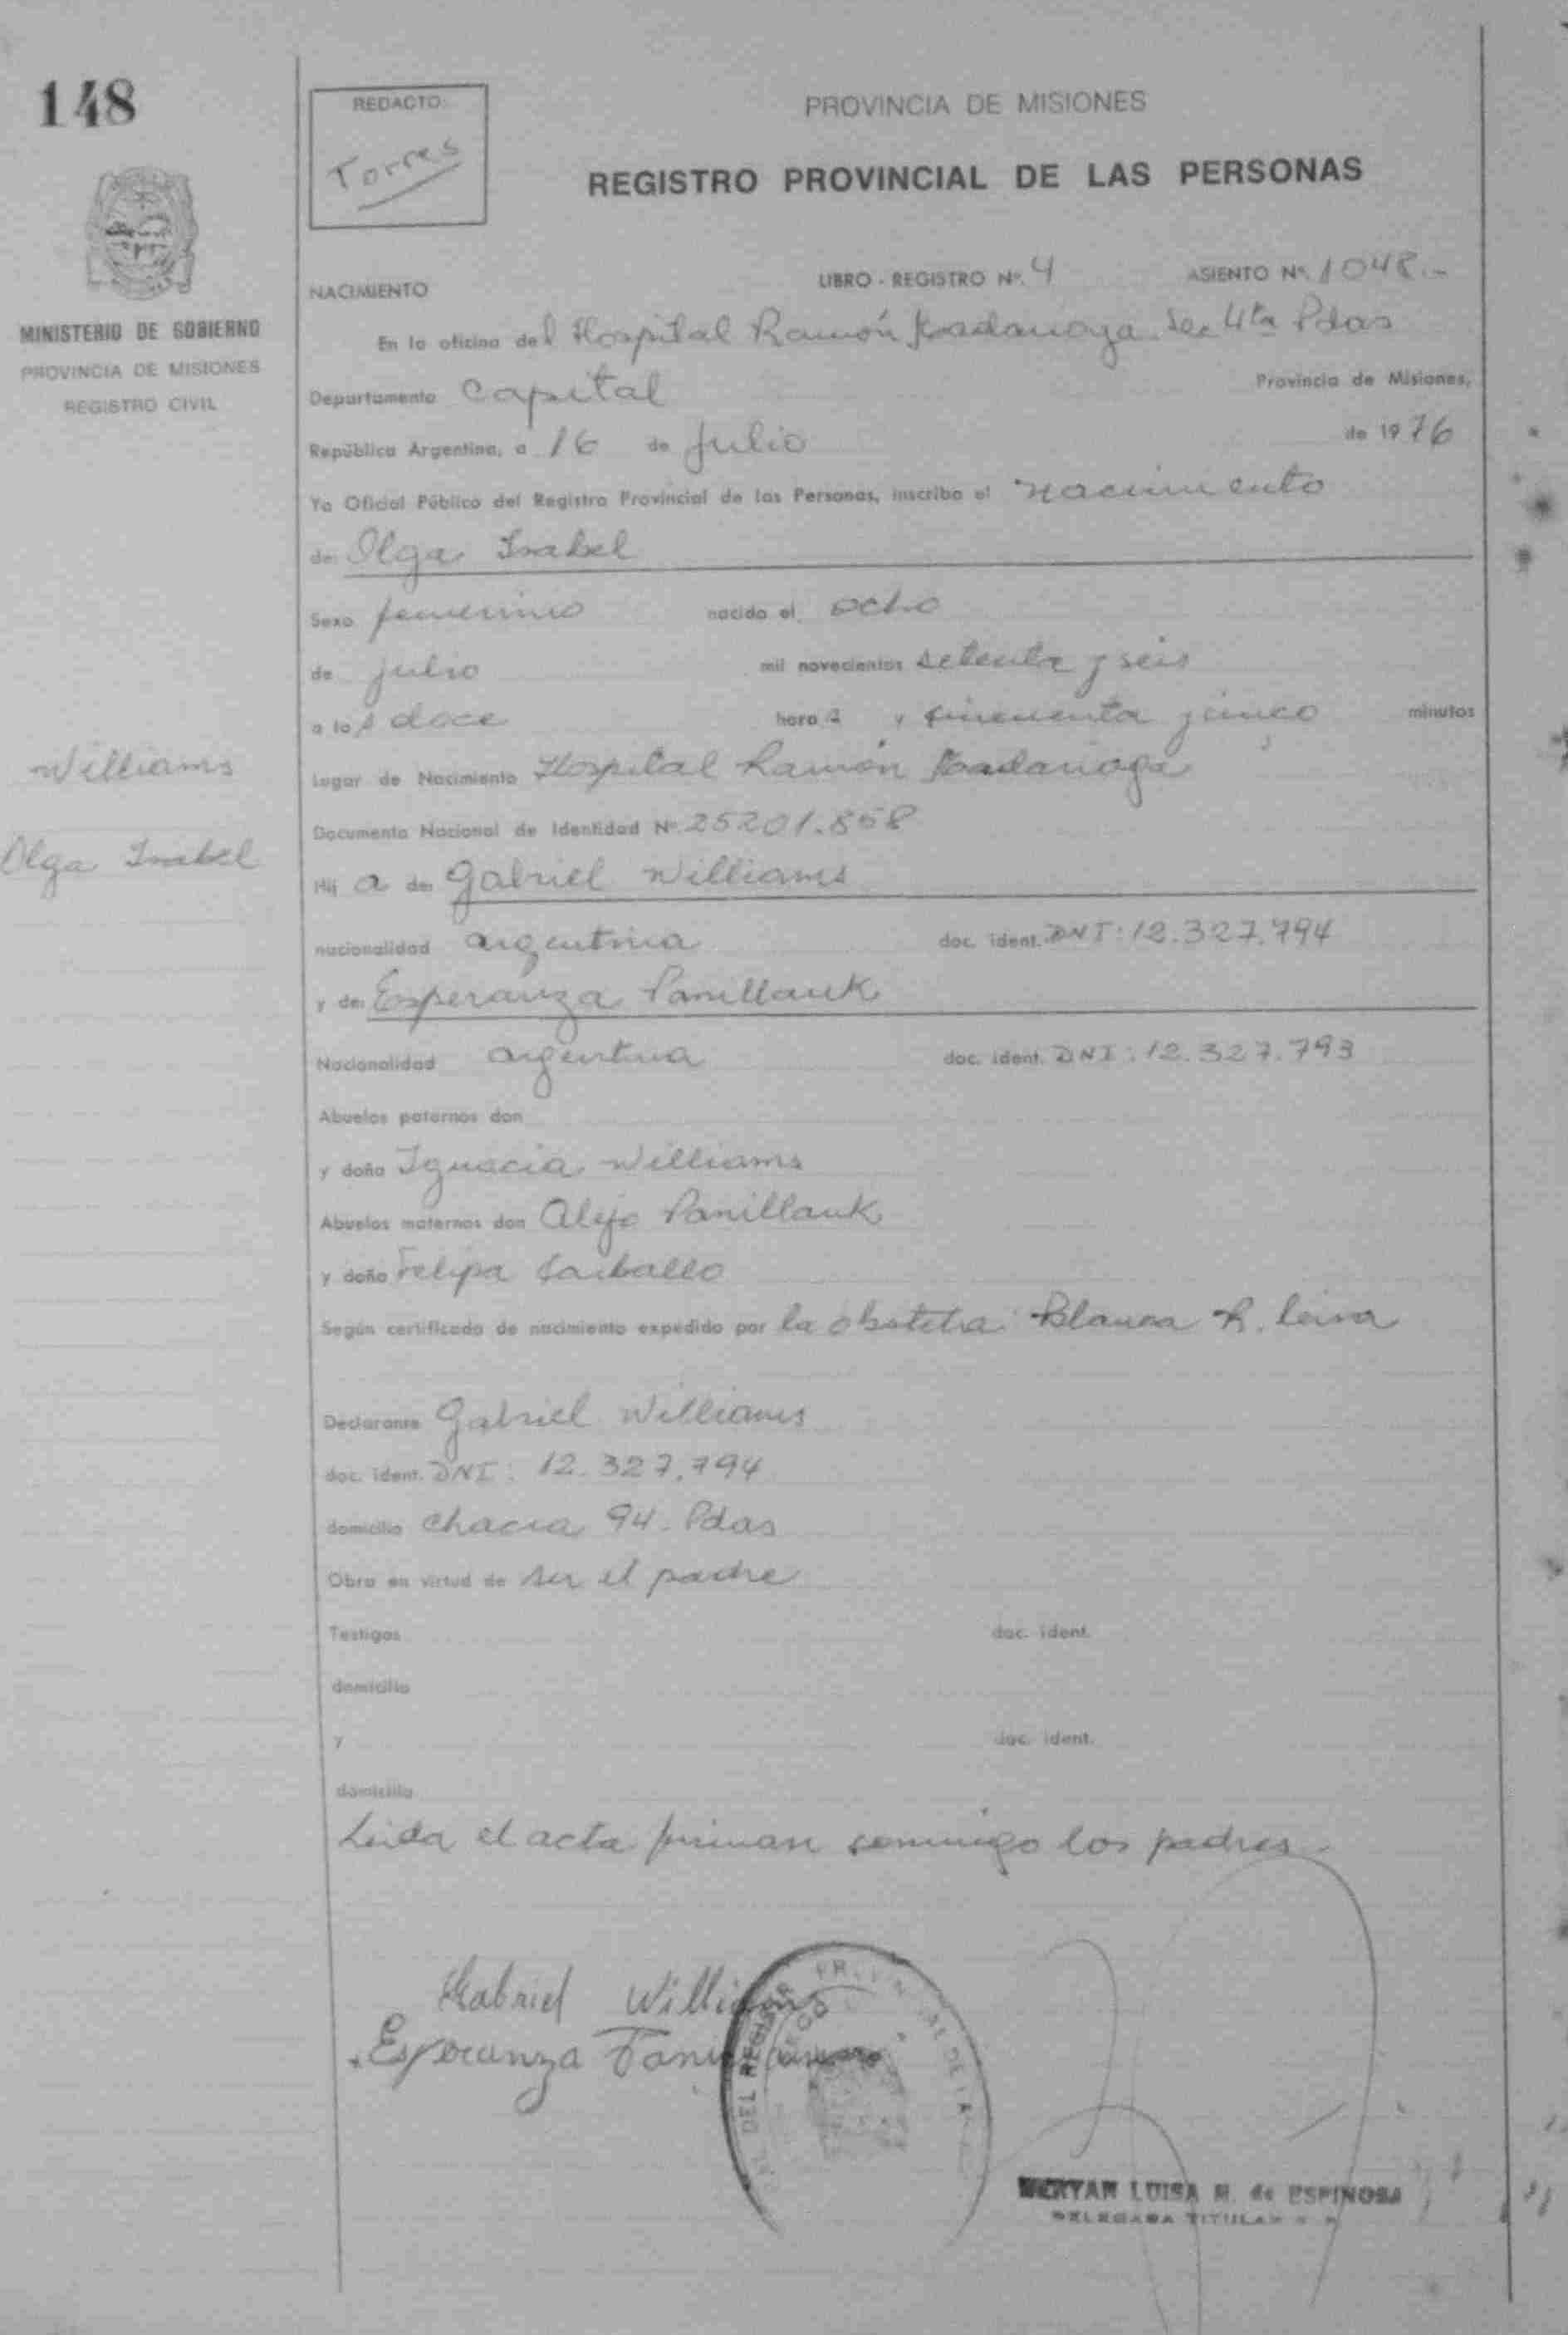 148
REDACTO:
Torres
PROVINCIA DE MISIONES
REGISTRO PROVINCIAL DE LAS PERSONAS
MINISTERIO DE GOBIERNO
PROVINCIA DE MISIONES
REGISTRO CIVIL
NACIMIENTO
LIBRO - REGISTRO Nº. 4
ASIENTO Nº. 1048.-
En la oficina del Hospital Ramón Madariaga Sec 4ta Pdas
Departamento Capital Provincia de Misiones,
República Argentina, a 16 de julio de 1976
Yo Oficial Público del Registro Provincial de las Personas, inscribo el nacimiento
de: Olga Isabel
Sexo femenino nacido el ocho
de julio mil novecientos setenta y seis
a los doce hora s y cincuenta y cinco minutos
Williams
Olga Isabel
Lugar de Nacimiento Hospital Ramón Madariaga
Documento Nacional de Identidad Nº 25201.858
Hij a de: Gabriel Williams
nacionalidad argentina doc. ident. DNI: 12.327.794
y de: Esperanza Panillauk
Nacionalidad argentina doc. ident. DNI: 12.327.793
Abuelos paternos don
y doña Ignacia Williams
Abuelos maternos don Alejo Panillauk
y doña Felipa Carballo
Según certificado de nacimiento expedido por la obstetra Blanca R. Leiva
Declarante Gabriel Williams
doc. ident. DNI: 12.327.794
domicilio Chacra 94 - Pdas
Obra en virtud de ser el padre
Testigos doc. ident.
domicilio
y doc. ident.
domicilio
Leída el acta firman conmigo los padres.
Gabriel Williams
Esperanza
DEL REGISTRO
LUISA M. de ESPINOSA
DELEGADA TITULAR